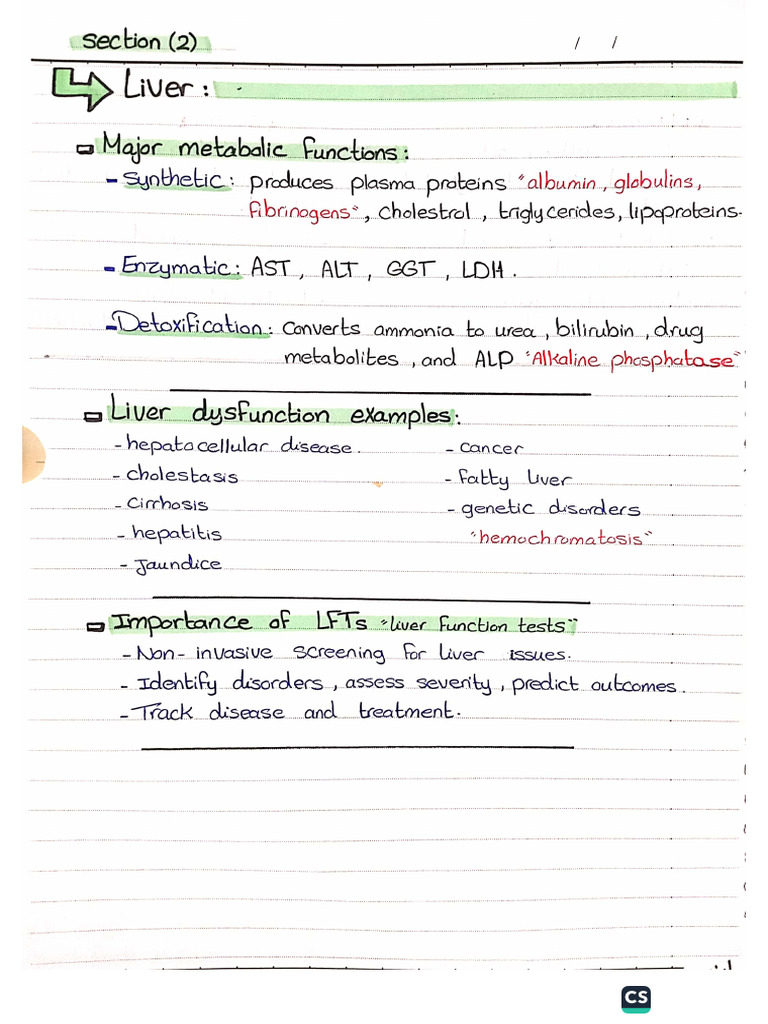 Section (2)
/ /
Liver:
Major metabolic functions:
- Synthetic: produces plasma proteins "albumin, globulins,
fibrinogens", cholestrol, triglycerides, lipoproteins.
- Enzymatic: AST, ALT, GGT, LDH.
- Detoxification: Converts ammonia to urea, bilirubin, drug
metabolites, and ALP "Alkaline phosphatase"
Liver dysfunction examples:
- hepatocellular disease.
- cholestasis
- Cirrhosis
- hepatitis
- Jaundice
- cancer
- fatty liver
- genetic disorders
"hemochromatosis"
Importance of LFTs "liver function tests"
- Non-invasive screening for liver issues.
- Identify disorders, assess severity, predict outcomes.
- Track disease and treatment.
CS